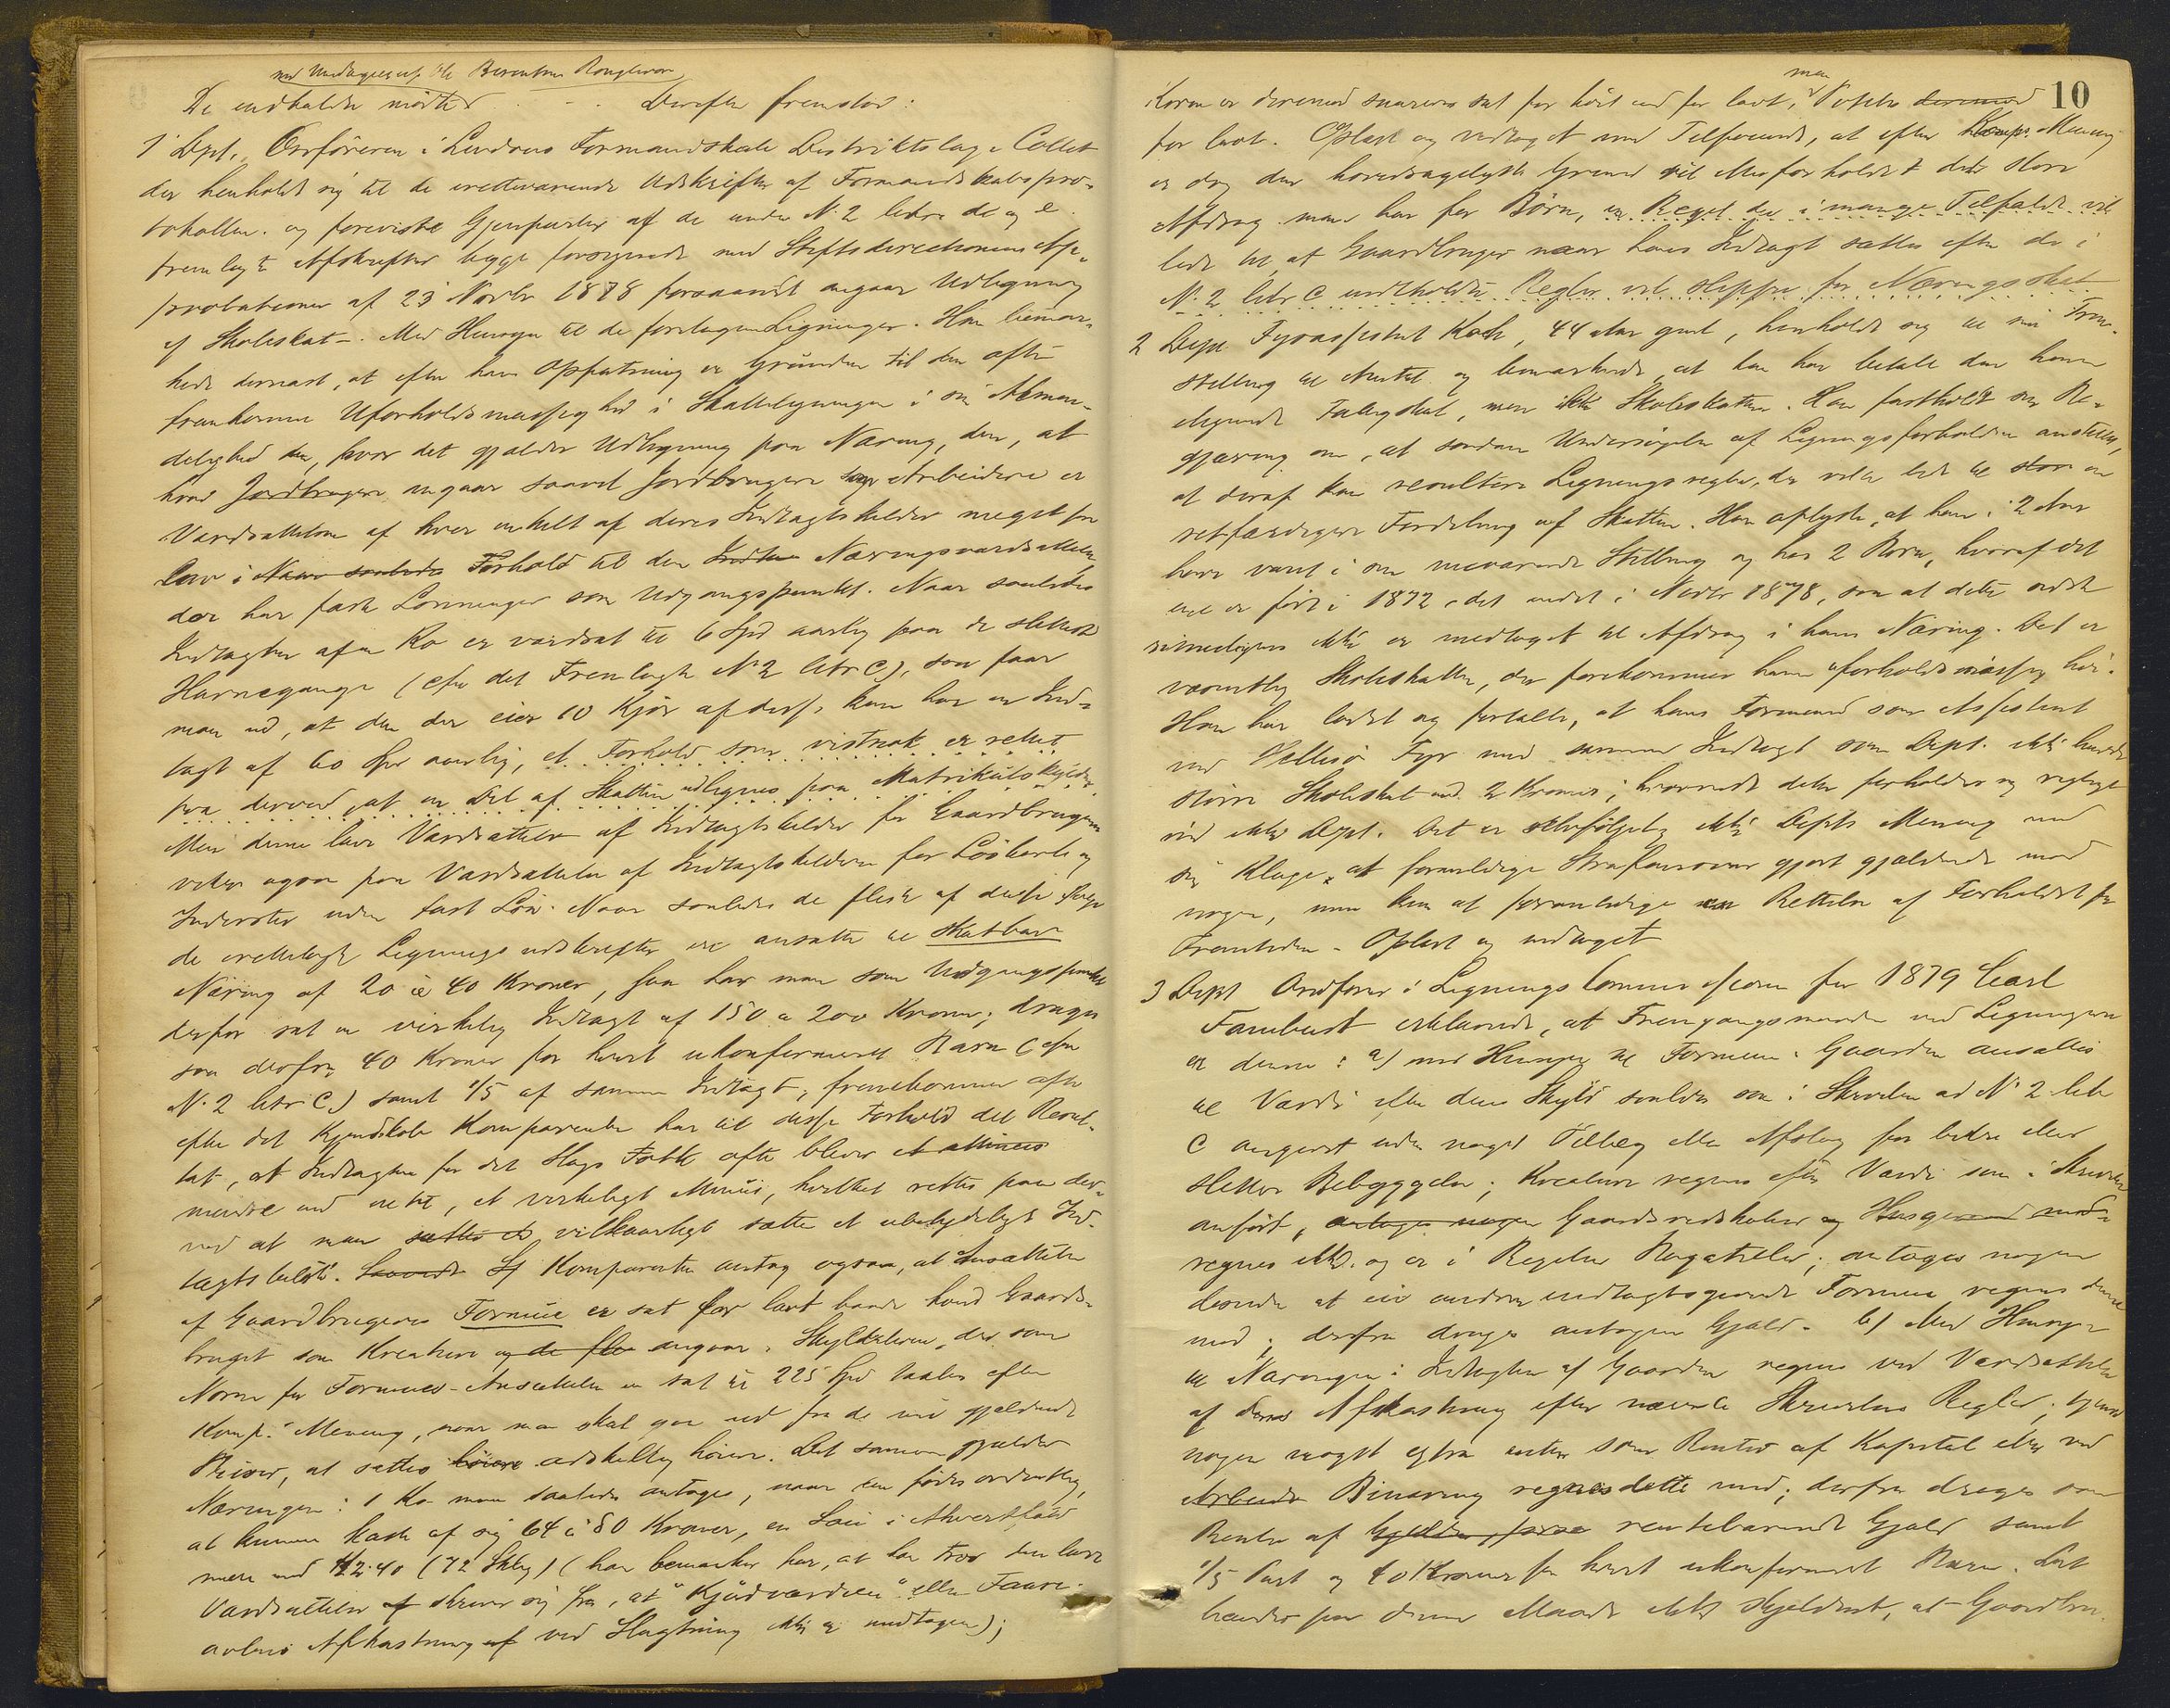 med Undtagelse af Berentsen Rougtvær
De indkaldte mödte Derefter fremstod:
1 Dept. Ordföreren i Lindaas Formandskab Distriktslæge Collet
der henholdt sig til de irettevarende Udskrifter af Formandskabspro-
tokollen. og foreviste Gjenparter af de under N. 2 litra d og e
fremlagte Afskrifter begge forsynede med Stiftsdirectionens Ap-
probationer af 23 Novbr 1878 forsaavidt angaar Udligning
af Skoleskat. Med Hensyn til de foretagne Ligninger. Han bemær-
kede dernæst, at efter hans Opfatning er Grunden til den ofte
fremkomne Uforholdsmæssighed i Skatteligningen i sin Almin-
delighed den, hvor det gjælder Udligning paa Næring, den, at
hvad Jordbrugere angaar saavel Jordbrugere som Arbeidere er
Værdsættelsen af hver enkelt af deres Indtægtskilder meget for
lav i Forhold til den Næringsværdsættelse
der har faste Lønninger som Udgangspunkt. Naar saaledes
Indtægten af en Ko er værdsat til 6 Spd aarlig paa de sletteste
Havnegange (cfr det Fremlagte N 2 litr C), saa faar
man ud, at den der eier 10 Kjör af disse kun har en Ind-
tægt af 60 Spd aarlig, et Forhold som vistnok er rettet
paa derved, at en Del af Skatten udlignes paa Matrikulskylden.
Men denne lave Værdsættelse af Indtægtskilder for Gaardbrugerne
virker ogsaa paa Værdsættelse af Indtægtskilderne for Löskarle og
Inderster uden fast Lön. Naar saaledes de fleste af disse ifölge
de irettelagte Ligningsudskrifter er ansatte til Skatbar
Næring af 20 à 40 Kroner, saa har man som Udgangspunkt
derfor sat en virkelig Indtægt af 150 a 200 Kroner; drages
saa derfra 40 Kroner for hvert ukonfirmeret Barn (cfr
N. 2 litr C) samt 1/5 af samme Indtægt, fremkommer ofte
efter det Kjendskab Komparenten har til disse Forhold det Resul-
tat, at Indtægten for det Slags Folk ofte bliver
mindre end intet, et virkeligt Minus, hvilket rettes paa der-
ved at man vilkaarligt sætter et ubetydeligt Ind-
tægtsbeløb. Komparenten antog ogsaa, at Ansættelsen
af Gaardbrugeres Formue er sat for lavt baade hvad Gaards-
bruget som Kreature og de fleste angaar. Skylddaleren, der som
Norm for Formues-Ansættelsen er sat til 225 Spd burde efter
Komp. Mening, naar man skal gaa ud fra de nu gjældende
Priser, at sættes höiere adskillig höiere. Det samme gjælder
Næringen: 1 Ko maa saaledes antages, naar den födes ordentlig,
at kunne kaste af sig 64 à 80 Kroner, en Sau i Athvertfald
mere end 2.40 (72 Skilling) (han bemærker her, at han tror den lave
Værdsættelse skriver sig fra, at "Kjödværdien" eller Faare-
avlens Afkastning af ved Slagtning ikke er medtagen);
10
Korn er derimod snarere sat for höit end for lavt, men Poteter derimod
for lavt. Oplæst og vedtaget med Tilföiende, at efter Komp. Mening
er dog den hovedsagelige Grund til Misforholdet det store
Afdrag man har for Börn, en Regel der i mange Tilfælde vil
lede til, at Gaardbruger naar hans Indtægt sættes efter de i
N. 2 litr C indeholdte Regler vil slippe for Næringsskat
2 Dept Fyrassistent Koch, 44 Aar gml, henholdt sig til sin Frem-
stilling til Amtet og bemærkede, at han har betalt den ham
ilignede Fattigskat, men ikke Skoleskatten. Han fastholdt sin Be-
gjæring om, at saadan Undersögelse af Ligningsforholdene anstilles,
at deraf kan resultere Ligningsregler, der vilde lede til en
retfærdigere Fordeling af Skatten. Han oplyste, at han i 2 Aar
have været i sin nuværende Stilling og har 2 Börn, hvoraf det
ene er födt i 1872, det andet i Novbr 1878, saa at dette sidste
rimeligvis ikke er medtaget til Afdrag i hans Næring. Det er
væsentlig Skoleskatten, der forekommer ham uforholdsmæssig höi.
Han har lært og fortalte, at hans Formand som Assistent
ved Hellisö Fyr med samme Indtægt som Dept. ikke havde
större Skoleskat end 2 Kroner; hvorvidt dette forholder sig rigtigt
ved ikke Dept. Det er selvfölgelig ikke Depts Mening med
sin Klage, at foranledige Strafansvar gjort gjældende mod
nogen, men kun at foranledige en Rettelse af Forholdet for
Fremtiden. Oplæst og vedtaget
3 Dept Ordförer i Ligningscommissionen for 1879 Carl
Farnbust erklærede, at Fremgangsmaaden ved Ligningen
er denne: a) med Hensyn til Formuen: Gaarden ansættes
til Værdi efter dens Skyld saaledes som i Skrivelse ad N 2 litr
C angivet uden noget Tillæg eller Afslag for bedre eller
slettere Bebyggelse; Kreaturer regnes efter Værdi som i Skrivelsen
anfört, antages nogen Gaardsredskaber og
regnes ikke og er i Regelen Bagateller; antages nogen
desuden at eie anden indtægtsgivende Formue regnes denne
med; derfra drages antagen Gjæld. b) Med Hensyn
til Næringen: Indtægten af Gaarden regnes ved Værdsættelse
af dens Afkastning efter nævnte Skrivelses Regler; tjener
nogen noget extra enten som Renter af Kapital eller ved
Arbeide Binæring regnes dette med; derfra drages som
Renter af rentebærende Gjæld samt
1/5 Part og 40 Kroner for hvert ukonfirmeret Barn. Det
hænder paa denne Maade ikke sjeldent, at Gaardbru-